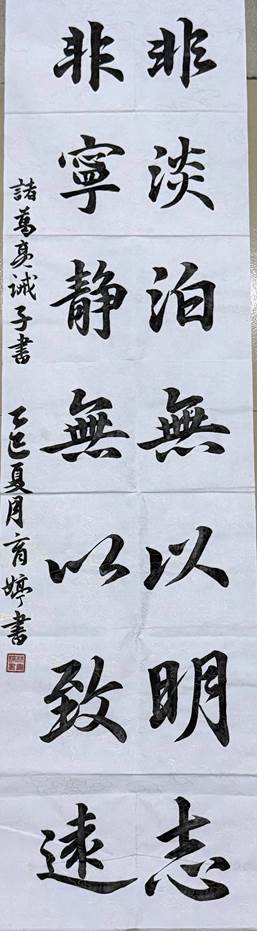 非淡泊無以明志
非寧静無以致遠
諸葛亮誡子書 乙巳夏月育婷書